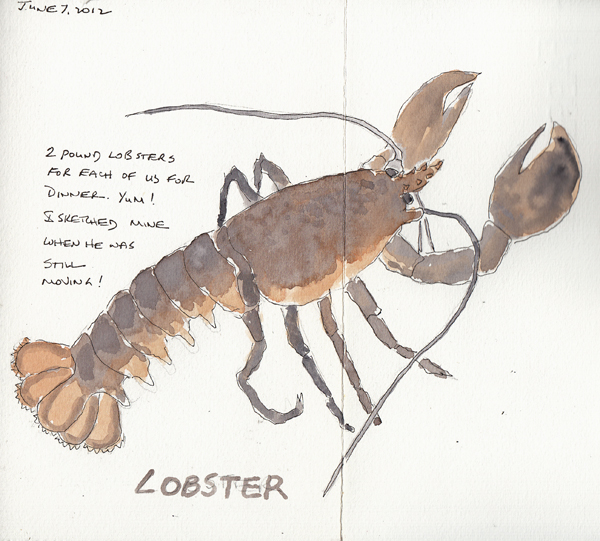 JUNE 7, 2012
2 POUND LOBSTERS
FOR EACH OF US FOR
DINNER. YUM!
I SKETCHED MINE
WHEN HE WAS
STILL
MOVING!
LOBSTER